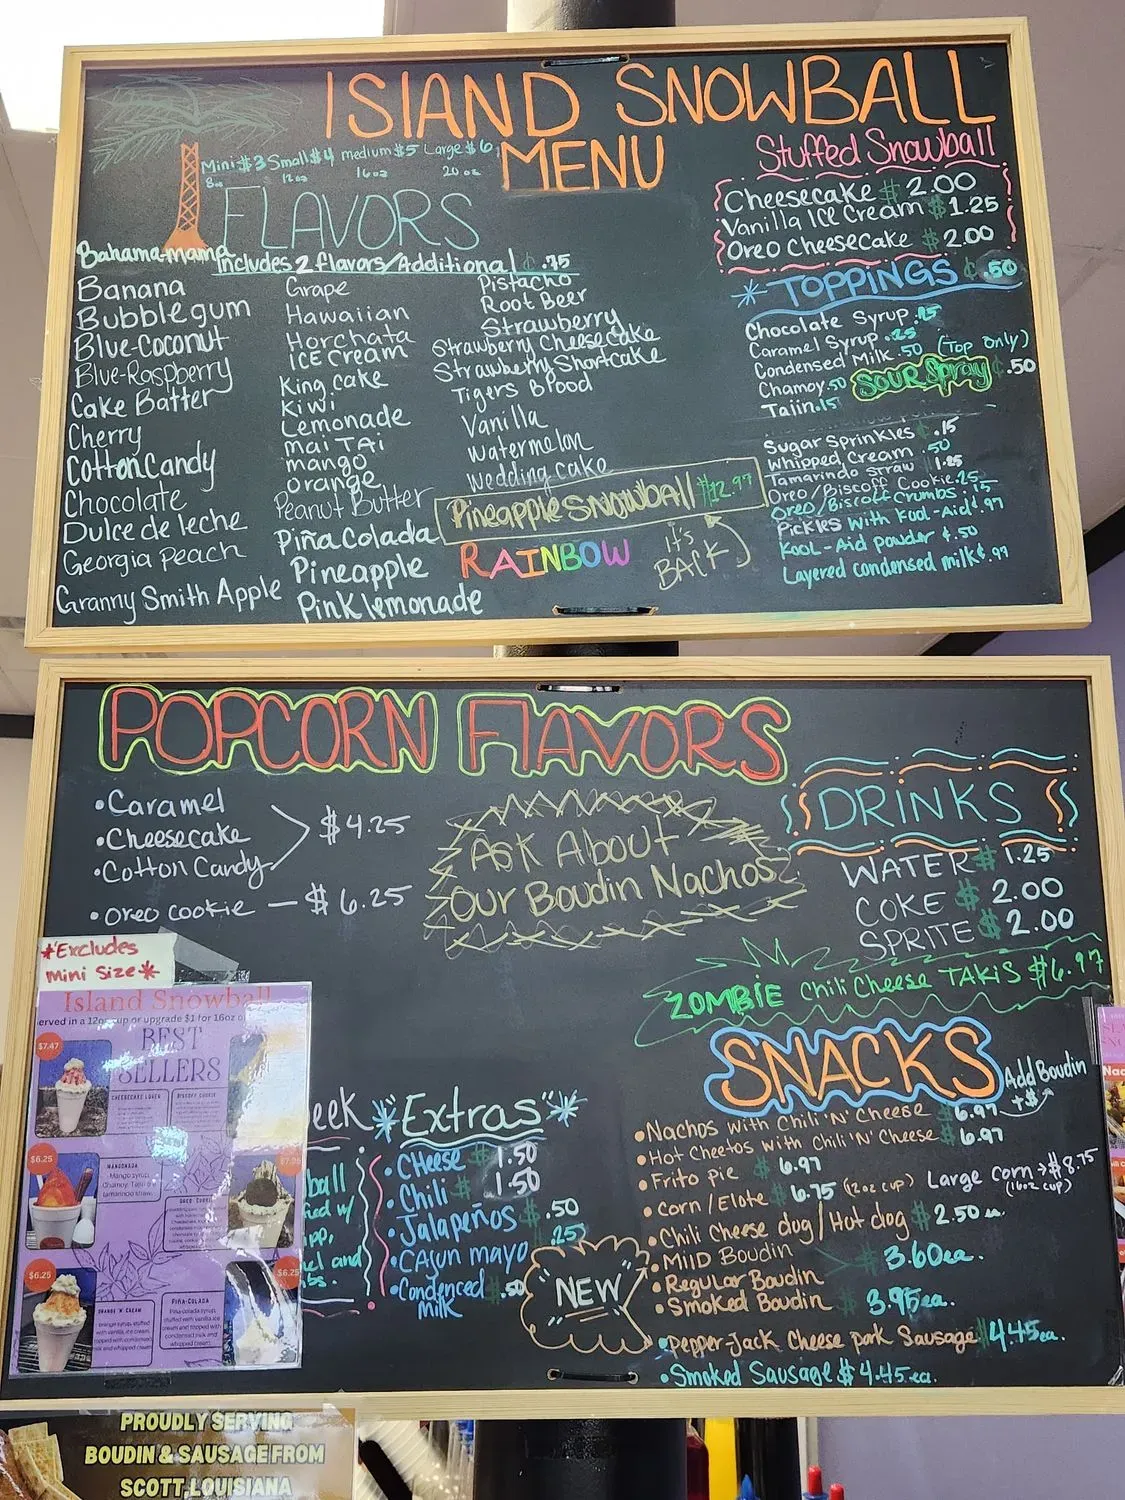 ISLAND SNOWBALL
MENU
Mini $3 Small $4 medium $5 Large $6
8oz 12oz 16oz 20oz
FLAVORS
Includes 2 flavors/Additional ¢.75
Bahama-mama
Banana
Bubblegum
Blue-Coconut
Blue-Raspberry
Cake Batter
Cherry
Cotton Candy
Chocolate
Dulce de leche
Georgia Peach
Granny Smith Apple
Grape
Hawaiian
Horchata
ICE Cream
King cake
Kiwi
Lemonade
mai TAi
mango
orange
Peanut Butter
Piña Colada
Pineapple
Pink lemonade
Pistacho
Root Beer
Strawberry
Strawberry Cheesecake
Strawberry Shortcake
Tigers Blood
Vanilla
Watermelon
Wedding cake
Pineapple SNOWball $12.97
RAINBOW
it's
BACK
Stuffed Snowball
Cheesecake $ 2.00
Vanilla ICE Cream $ 1.25
Oreo Cheesecake $ 2.00
*TOPPINGS ¢.50
Chocolate Syrup .25
Caramel Syrup .25
Condensed Milk .50 (Top only)
Chamoy .50 SOUR Spray .50
Tajin .15
Sugar Sprinkles .15
Whipped Cream .50
Tamarindo Straw 1.25
Oreo/Biscoff Cookie .25
Oreo/Biscoff Crumbs .15
Pickles with Kool-Aid ¢.97
Kool-Aid powder ¢.50
Layered condensed milk ¢.99
POPCORN FLAVORS
•Caramel
•Cheesecake
•Cotton Candy
$4.25
•Oreo cookie — $6.25
Ask About
Our Boudin Nachos
DRINKS
WATER $ 1.25
COKE $ 2.00
SPRITE $ 2.00
ZOMBIE Chili Cheese TAKIS $6.97
SNACKS
Add Boudin
+$1
•Nachos with Chili 'N' Cheese $ 6.97
•Hot Cheetos with Chili 'N' Cheese $ 6.97
•Frito pie $ 6.97
•Corn/Elote $ 6.75 (12oz cup) Large corn → $8.75
(16oz cup)
•Chili Cheese dog/Hot dog $ 2.50 ea.
•Mild Boudin
•Regular Boudin
$ 3.60ea.
•Smoked Boudin $ 3.95ea.
•Pepper-Jack Cheese pork Sausage $4.45ea.
•Smoked Sausage $ 4.45.ea.
NEW
*"Extras"*
•Cheese $ 1.50
•Chili $ 1.50
•Jalapeños $ .50
•CAjun mayo .25
•Condenced
Milk .50
eek
ball
*Excludes
mini Size*
Island Snowball
erved in a 12oz cup or upgrade $1 for 16oz
BEST
SELLERS
$7.47
CHEESECAKE LOVER
BISCOFF COOKIE
$6.25
MANGONADA
Mango syrup,
Chamoy, Tajin,
tamarindo straw.
$6.25
ORANGE 'N' CREAM
orange syrup, stuffed
with vanilla ice cream
topped with condensed
milk and whipped cream
$6.25
PIÑA-COLADA
Piña-colada syrup,
stuffed with vanilla ice
cream and topped with
condensed milk and
whipped cream
PROUDLY SERVING
BOUDIN & SAUSAGE FROM
SCOTT, LOUISIANA